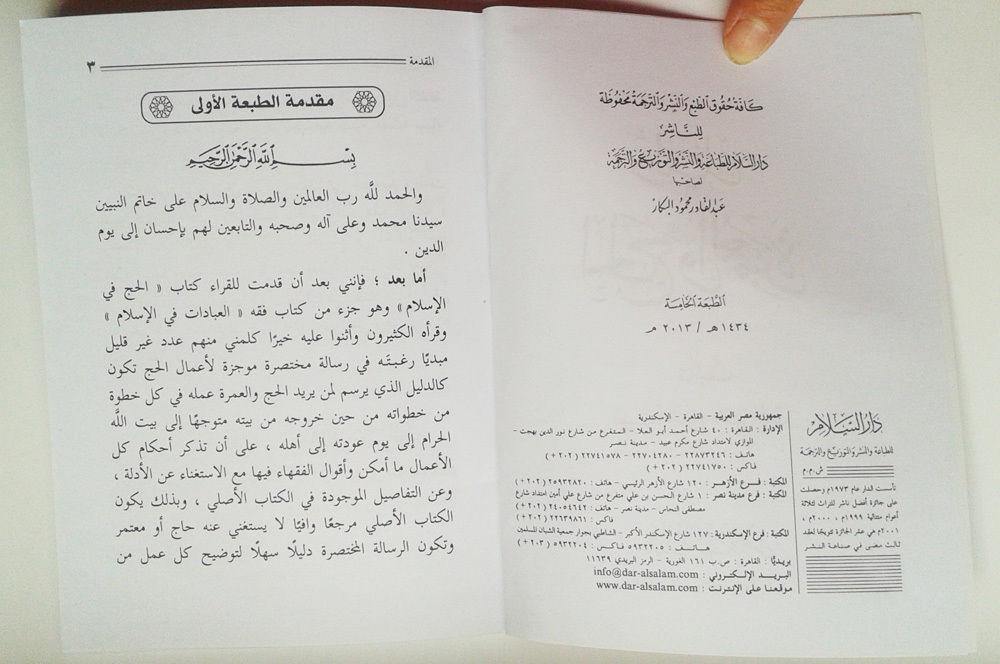 كافة حقوق الطبع والنشر والترجمة محفوظة
للناشر
دار السلام للطباعة والنشر والتوزيع والترجمة
لصاحبها
عبد القادر محمود البكار
الطبعة الخامسة
١٤٣٤ هـ / ٢٠١٣ م
دار السلام
للطباعة والنشر والتوزيع والترجمة
ش.م.م
تأسست الدار عام ١٩٧٣م وحصلت
على جائزة أفضل ناشر للتراث لثلاثة
أعوام متتالية ١٩٩٩م ، ٢٠٠٠م ،
٢٠٠١م هي عشر الجائزة تتويجًا لعقد
ثالث مضى في صناعة النشر
جمهورية مصر العربية - القاهرة - الإسكندرية
الإدارة : القاهرة : ٤٠ شارع أحمد أبو العلا - المتفرع من شارع نور الدين بهجت -
الموازي لامتداد شارع مكرم عبيد - مدينة نصر
هاتف : ٢٢٨٧٣٢٤٦ - ٢٢٧٠٤٢٨٠ - ٢٢٧٤١٥٧٨ ( ٢٠٢ + )
فاكس : ٢٢٧٤١٧٥٠ ( ٢٠٢ + )
المكتبة : فرع الأزهر : ١٢٠ شارع الأزهر الرئيسي - هاتف : ٢٥٩٣٢٨٢٠ ( ٢٠٢ + )
المكتبة : فرع مدينة نصر : ١ شارع الحسن بن علي متفرع من شارع علي أمين امتداد شارع
مصطفى النحاس - مدينة نصر - هاتف : ٢٤٠٥٤٦٤٢ ( ٢٠٢ + )
فاكس : ٢٢٦٣٩٨٦١ ( ٢٠٢ + )
المكتبة : فرع الإسكندرية : ١٢٧ شارع الإسكندر الأكبر - الشاطبي بجوار جمعية الشبان المسلمين
هاتف : ٥٩٣٢٢٠٥ فاكس : ٥٩٣٢٢٠٤ ( ٢٠٣ + )
بريديًّا : القاهرة : ص.ب ١٦١ الغورية - الرمز البريدي ١١٦٣٩
البريد الإلكتروني : info@dar-alsalam.com
موقعنا على الإنترنت : www.dar-alsalam.com
المقدمة ٣
مقدمة الطبعة الأولى
بسم الله الرحمن الرحيم
والحمد للَّه رب العالمين والصلاة والسلام على خاتم النبيين
سيدنا محمد وعلى آله وصحبه والتابعين لهم بإحسان إلى يوم
الدين .
أما بعد ؛ فإنني بعد أن قدمت للقراء كتاب « الحج في
الإسلام » وهو جزء من كتاب فقه « العبادات في الإسلام »
وقرأه الكثيرون وأثنوا عليه خيرًا كلمني منهم عدد غير قليل
مبديًا رغبته في رسالة مختصرة موجزة لأعمال الحج تكون
كالدليل الذي يرسم لمن يريد الحج والعمرة عمله في كل خطوة
من خطواته من حين خروجه من بيته متوجهًا إلى بيت اللَّه
الحرام إلى يوم عودته إلى أهله ، على أن تذكر أحكام كل
الأعمال ما أمكن وأقوال الفقهاء فيها مع الاستغناء عن الأدلة ،
وعن التفاصيل الموجودة في الكتاب الأصلي ، وبذلك يكون
الكتاب الأصلي مرجعًا وافيًا لا يستغني عنه حاج أو معتمر
وتكون الرسالة المختصرة دليلًا سهلًا لتوضيح كل عمل من